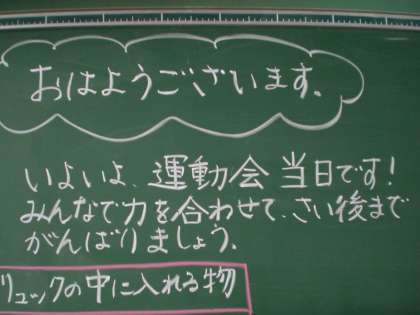 おはようございます。
いよいよ、運動会当日です!
みんなで力を合わせて、さい後まで
がんばりましょう。
リュックの中に入れる物